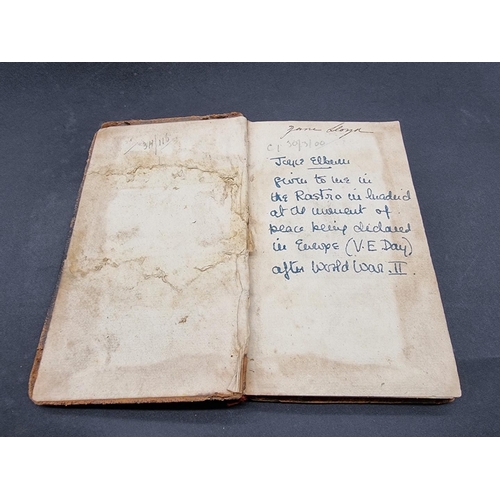 Jane Lloyd
Joyce
given to me in
the Rastro in Madrid
at the moment of
peace being declared
in Europe (V.E Day)
after World War II